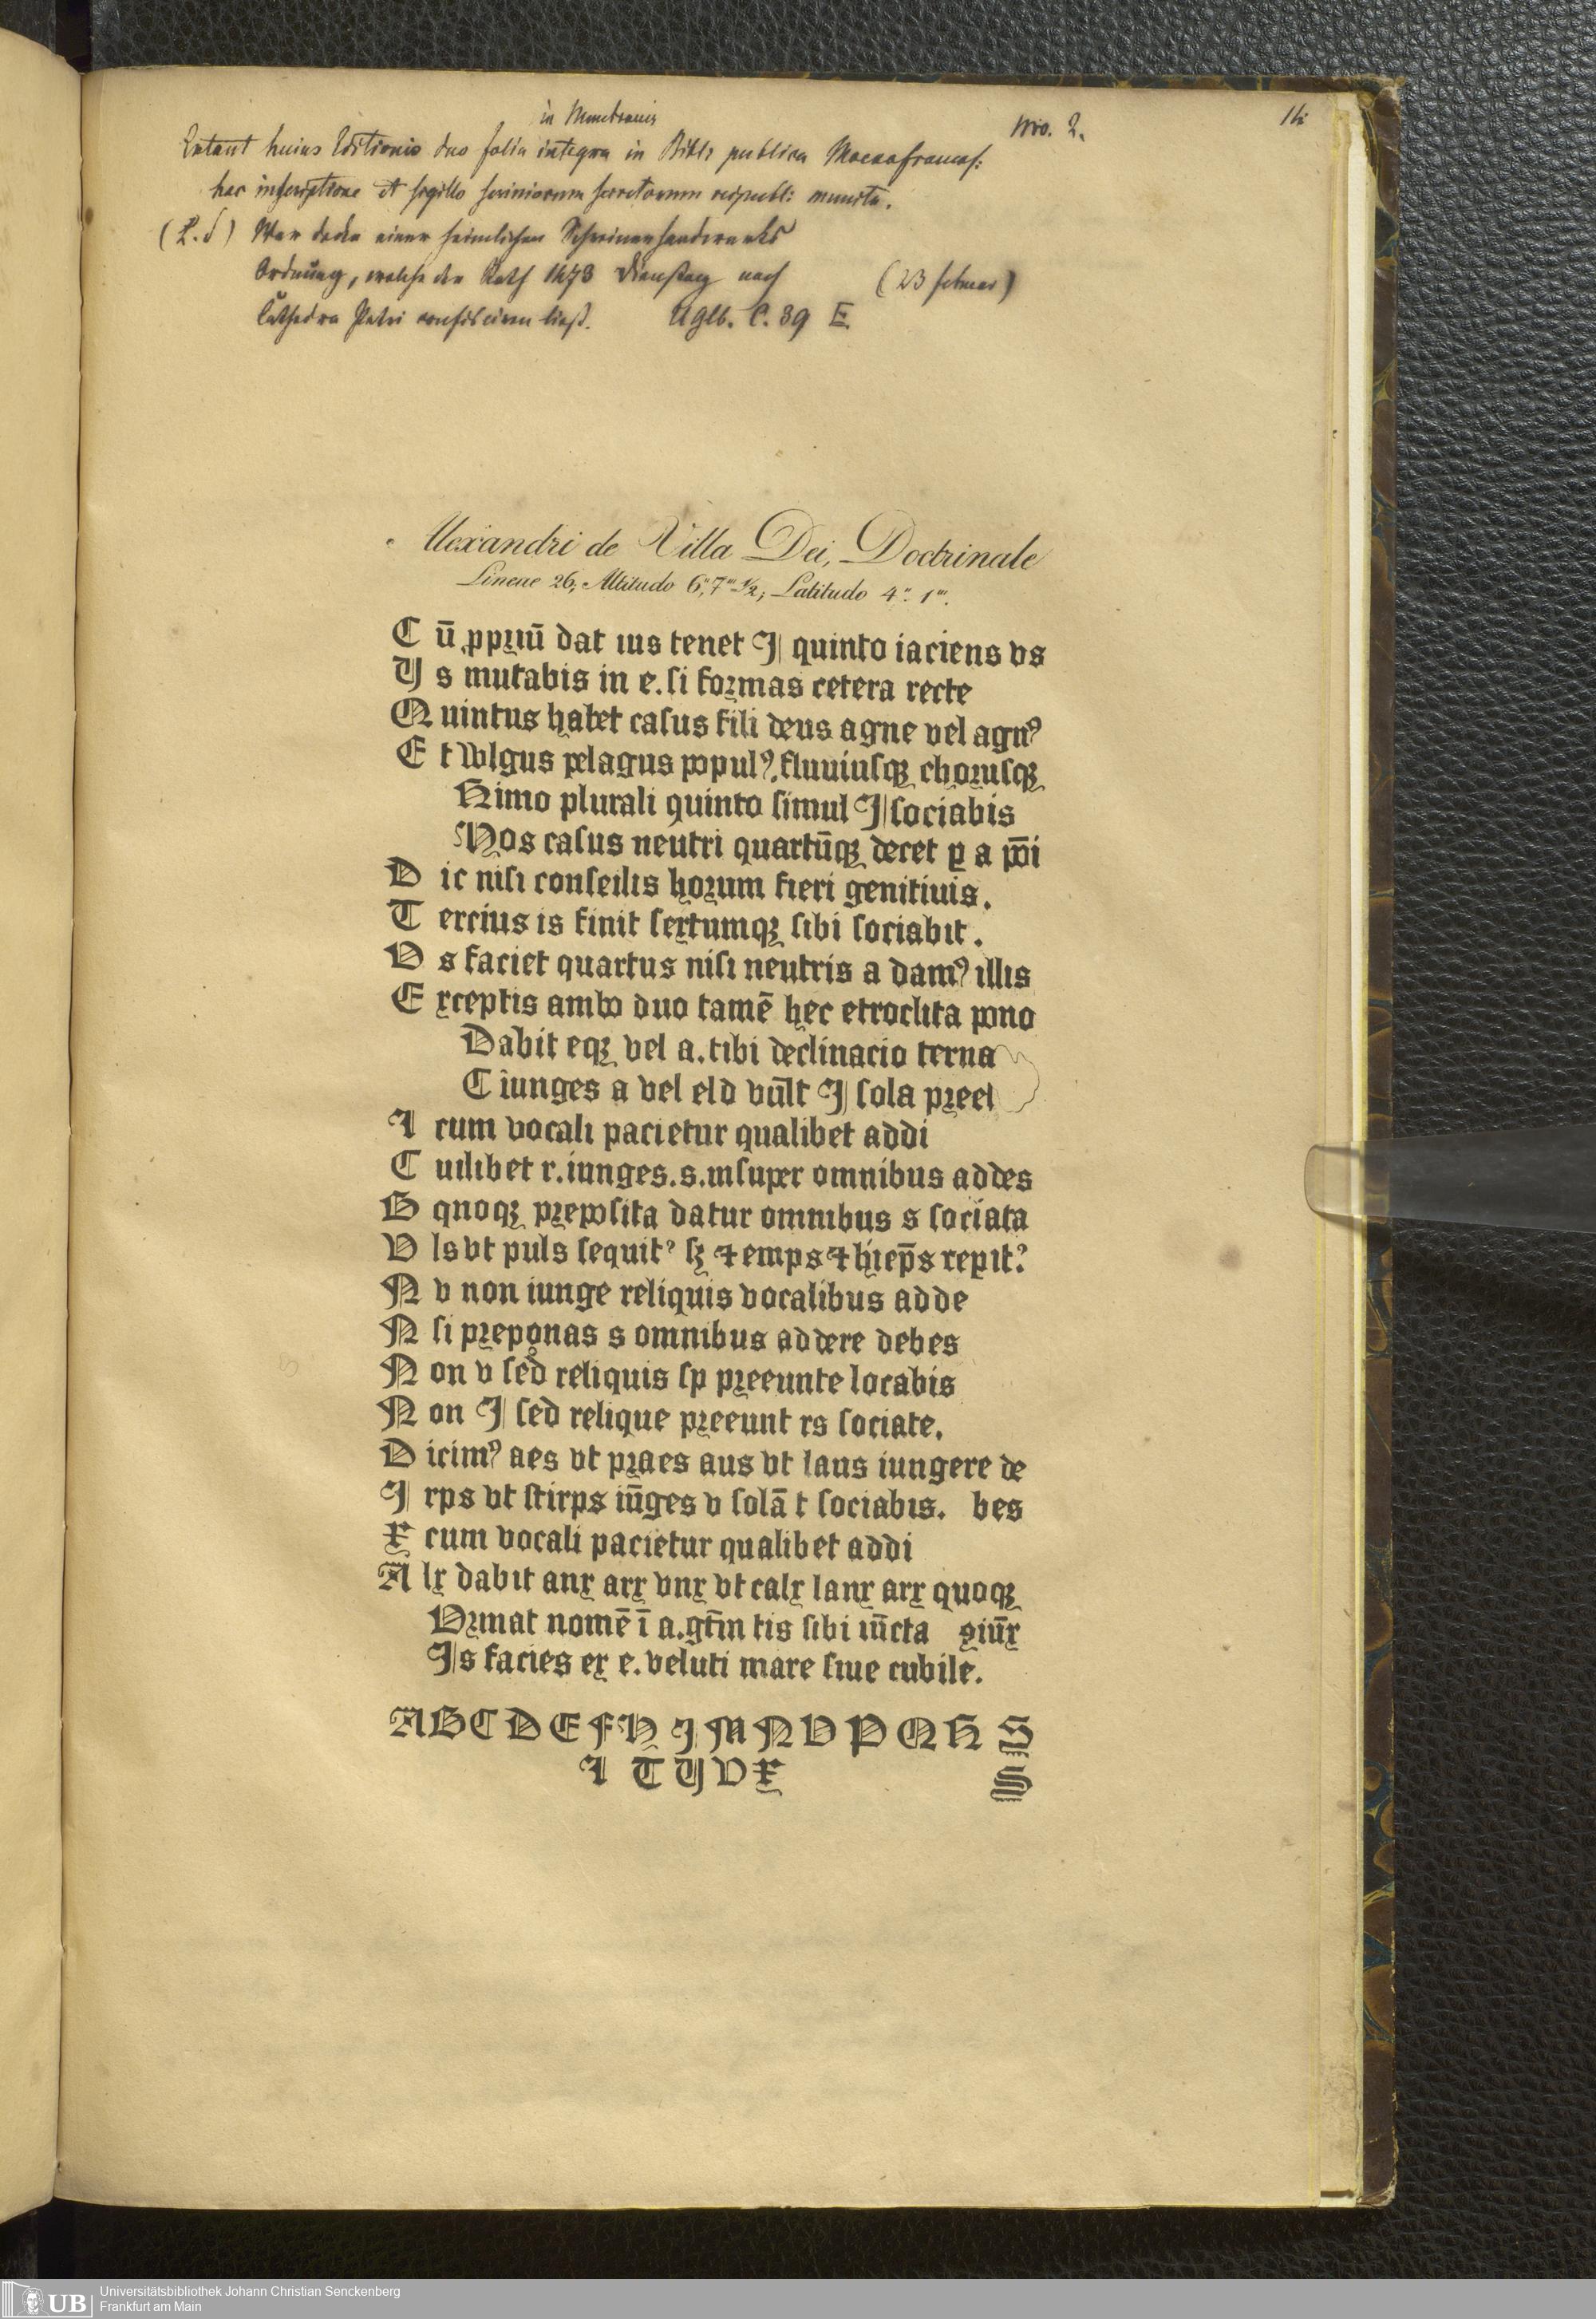 in Membranis
Nro. 2.
14
Extant huius Editionis duo folia integra in Bibl: publica Moenofrancof:
hac inscriptione et sigillo scriniorum secretorum reipubl: munita.
(L.S) War decke einer heimlichen Schreinerhandwerks
Ordnung, welche der Rath 1473 Dienstag nach (23 februar)
Cathedra Petri confisciren ließ. Uglb. C. 39 E.
Alexandri de Villa Dei, Doctrinale
Lineae 26; Altitudo 6", 7"' 1/2; Latitudo 4". 1"'.
C ū ꝓpꝛiū dat ius tenet I quinto iaciens vs
Y s mutabis in e. ſi foꝛmas cetera recte
Q uintus habet caſus fili deus agne vel agnꝰ
E t wlgus pelagus populꝰ. fluuiuſqꝫ choꝛuſqꝫ
Himo plurali quinto ſimul I ſociabis
Hos caſus neutri quartūqꝫ decet ꝑ a pōi
D ic niſi conſeilis hoꝛum fieri genitiuis.
T ercius is finit ſextumqꝫ ſibi ſociabit.
V s faciet quartus niſi neutris a damꝰ illis
E xceptis ambo duo tamē hec etroclita pono
Dabit eqꝫ vel a. tibi declinacio terna
C iunges a vel eld vult I ſola pꝛeel
I cum vocali pacietur qualibet addi
C uilibet r. iunges. s. inſuper omnibus addes
B quoqꝫ pꝛepoſita datur omnibus s ſociata
V ls vt puls ſequit᾽ ſꝫ ⁊ emps ⁊ hiep̄s repit᾽.
N v non iunge reliquis vocalibus adde
N ſi pꝛeponas s omnibus addere debes
N on v ſed reliquis ſp pꝛeeunte locabis
N on I ſed relique pꝛeeunt rs ſociate.
D icimꝰ aes vt pꝛaes aus vt laus iungere de
I rps vt ſtirps iūges v ſolā t ſociabis. bes
X cum vocali pacietur qualibet addi
A lx dabit anx arx vnx vt calx lanx arx quoqꝫ
Vꝛmat nomē ī a. gt̄m tis ſibi iūcta ꝯiūx
Is facies ex e. veluti mare ſiue cubile.
A B C D E F H I M N V P Q H S
I T Y V X S
UB Universitätsbibliothek Johann Christian Senckenberg
Frankfurt am Main